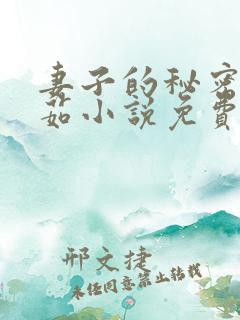 妻子的秘密
茹小说免费
邢文捷
未经同意禁止转载